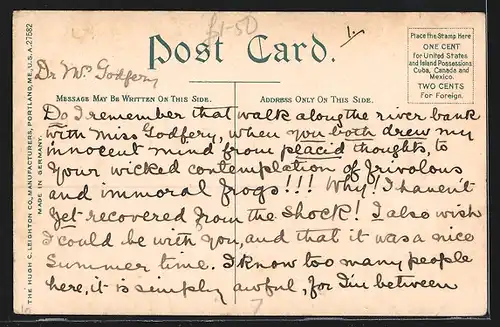 £1-50
1.
Post Card.
Place the Stamp Here
ONE CENT
for United States
and Island Possessions
Cuba, Canada and
Mexico.
TWO CENTS
For Foreign.
Dr Mrs Godfery
MESSAGE MAY BE WRITTEN ON THIS SIDE.
ADDRESS ONLY ON THIS SIDE.
Do I remember that walk along the river bank
with Miss Godfery, when you both drew my
innocent mind from placid thoughts, to
your wicked contemplation of frivolous
and immoral frogs!!! Why! I haven't
yet recovered from the shock! I also wish
I could be with you, and that it was a nice
Summer time. I know too many people
here, it is simply awful, for I'm between
THE HUGH C. LEIGHTON CO., MANUFACTURERS, PORTLAND, ME., U.S.A. 27582
MADE IN GERMANY